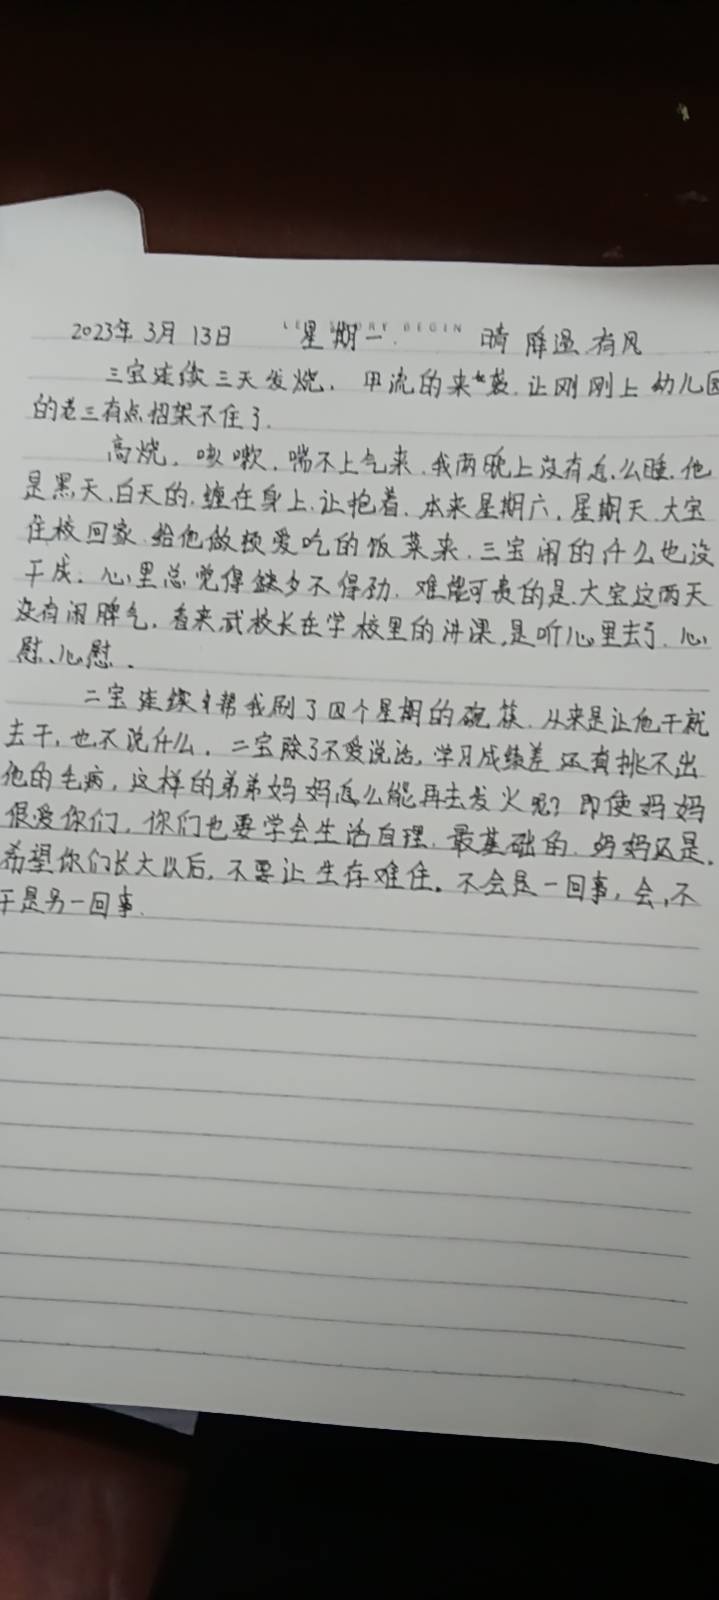 LE STORY BEGIN
2023年 3月 13日 星期一. 晴 降温 有风
三宝连续三天发烧. 甲流的来袭. 让刚刚上幼儿园
的老三有点招架不住了.
高烧. 咳嗽. 喘不上气来. 我两晚上没有怎么睡. 他
是黑天.白天的.缠在身上.让抱着. 本来星期六. 星期天.大宝
住校回家.给他做顿爱吃的饭菜来.三宝闹的什么也没
干成. 心里总觉得缺少不得劲. 难能可贵的是.大宝这两天
没有闹脾气. 看来武校长在学校里的讲课.是听心里去了. 心
慰、心慰.
二宝连续 帮我刷了四个星期的碗筷. 从来是让他干就
去干,也不说什么. 二宝除了不爱说话,学习成绩差 还真挑不出
他的毛病,这样的弟弟妈妈怎么能再去发火呢? 即使妈妈
很爱你们, 你们也要学会生活自理. 最基础的. 妈妈还是.
希望你们长大以后.不要让生存难住。不会是一回事, 会,不
干是另一回事.